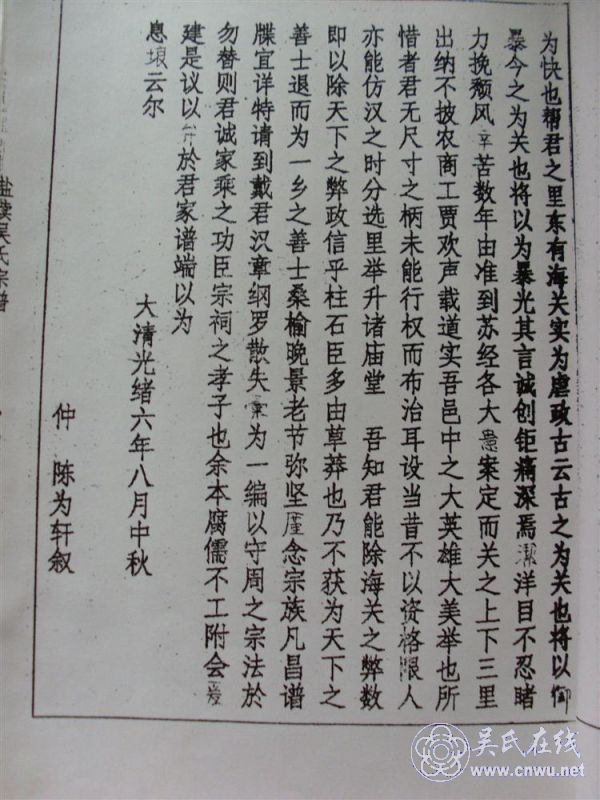 为快也帮君之里东有海关实为虐政古云古之为关也将以
暴今之为关也将以为暴光其言诚创钜痛深焉洁洋目不忍睹
力挽颓风辛苦数年由淮到苏经各大宪案定而关之上下三里
出纳不披农商工贾欢声载道实吾邑中之大英雄大美举也所
惜者君无尺寸之柄未能行权而布治耳设当昔不以资格限人
亦能仿汉之时分选里举升诸庙堂 吾知君能除海关之弊数
即以除天下之弊政信乎柱石臣多由草莽也乃不获为天下之
善士退而为一乡之善士桑榆晚景老节弥坚念宗族凡昌谱
牒宜详特请到戴君汉章纲罗散失为一编以守周之宗法於
勿替则君诚家乘之功臣宗祠之孝子也余本腐儒不工附会爰
建是议以弁於君家谱端以为
息壤云尔
大清光绪六年八月中秋
仲 陈为轩叙
盐渎吴氏宗谱
吴氏在线
www.cnwu.net